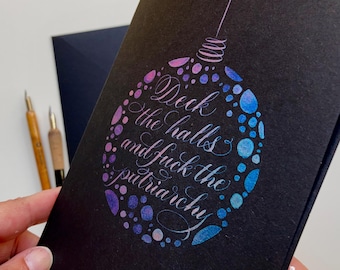 Deck
the halls
and fuck the
patriarchy